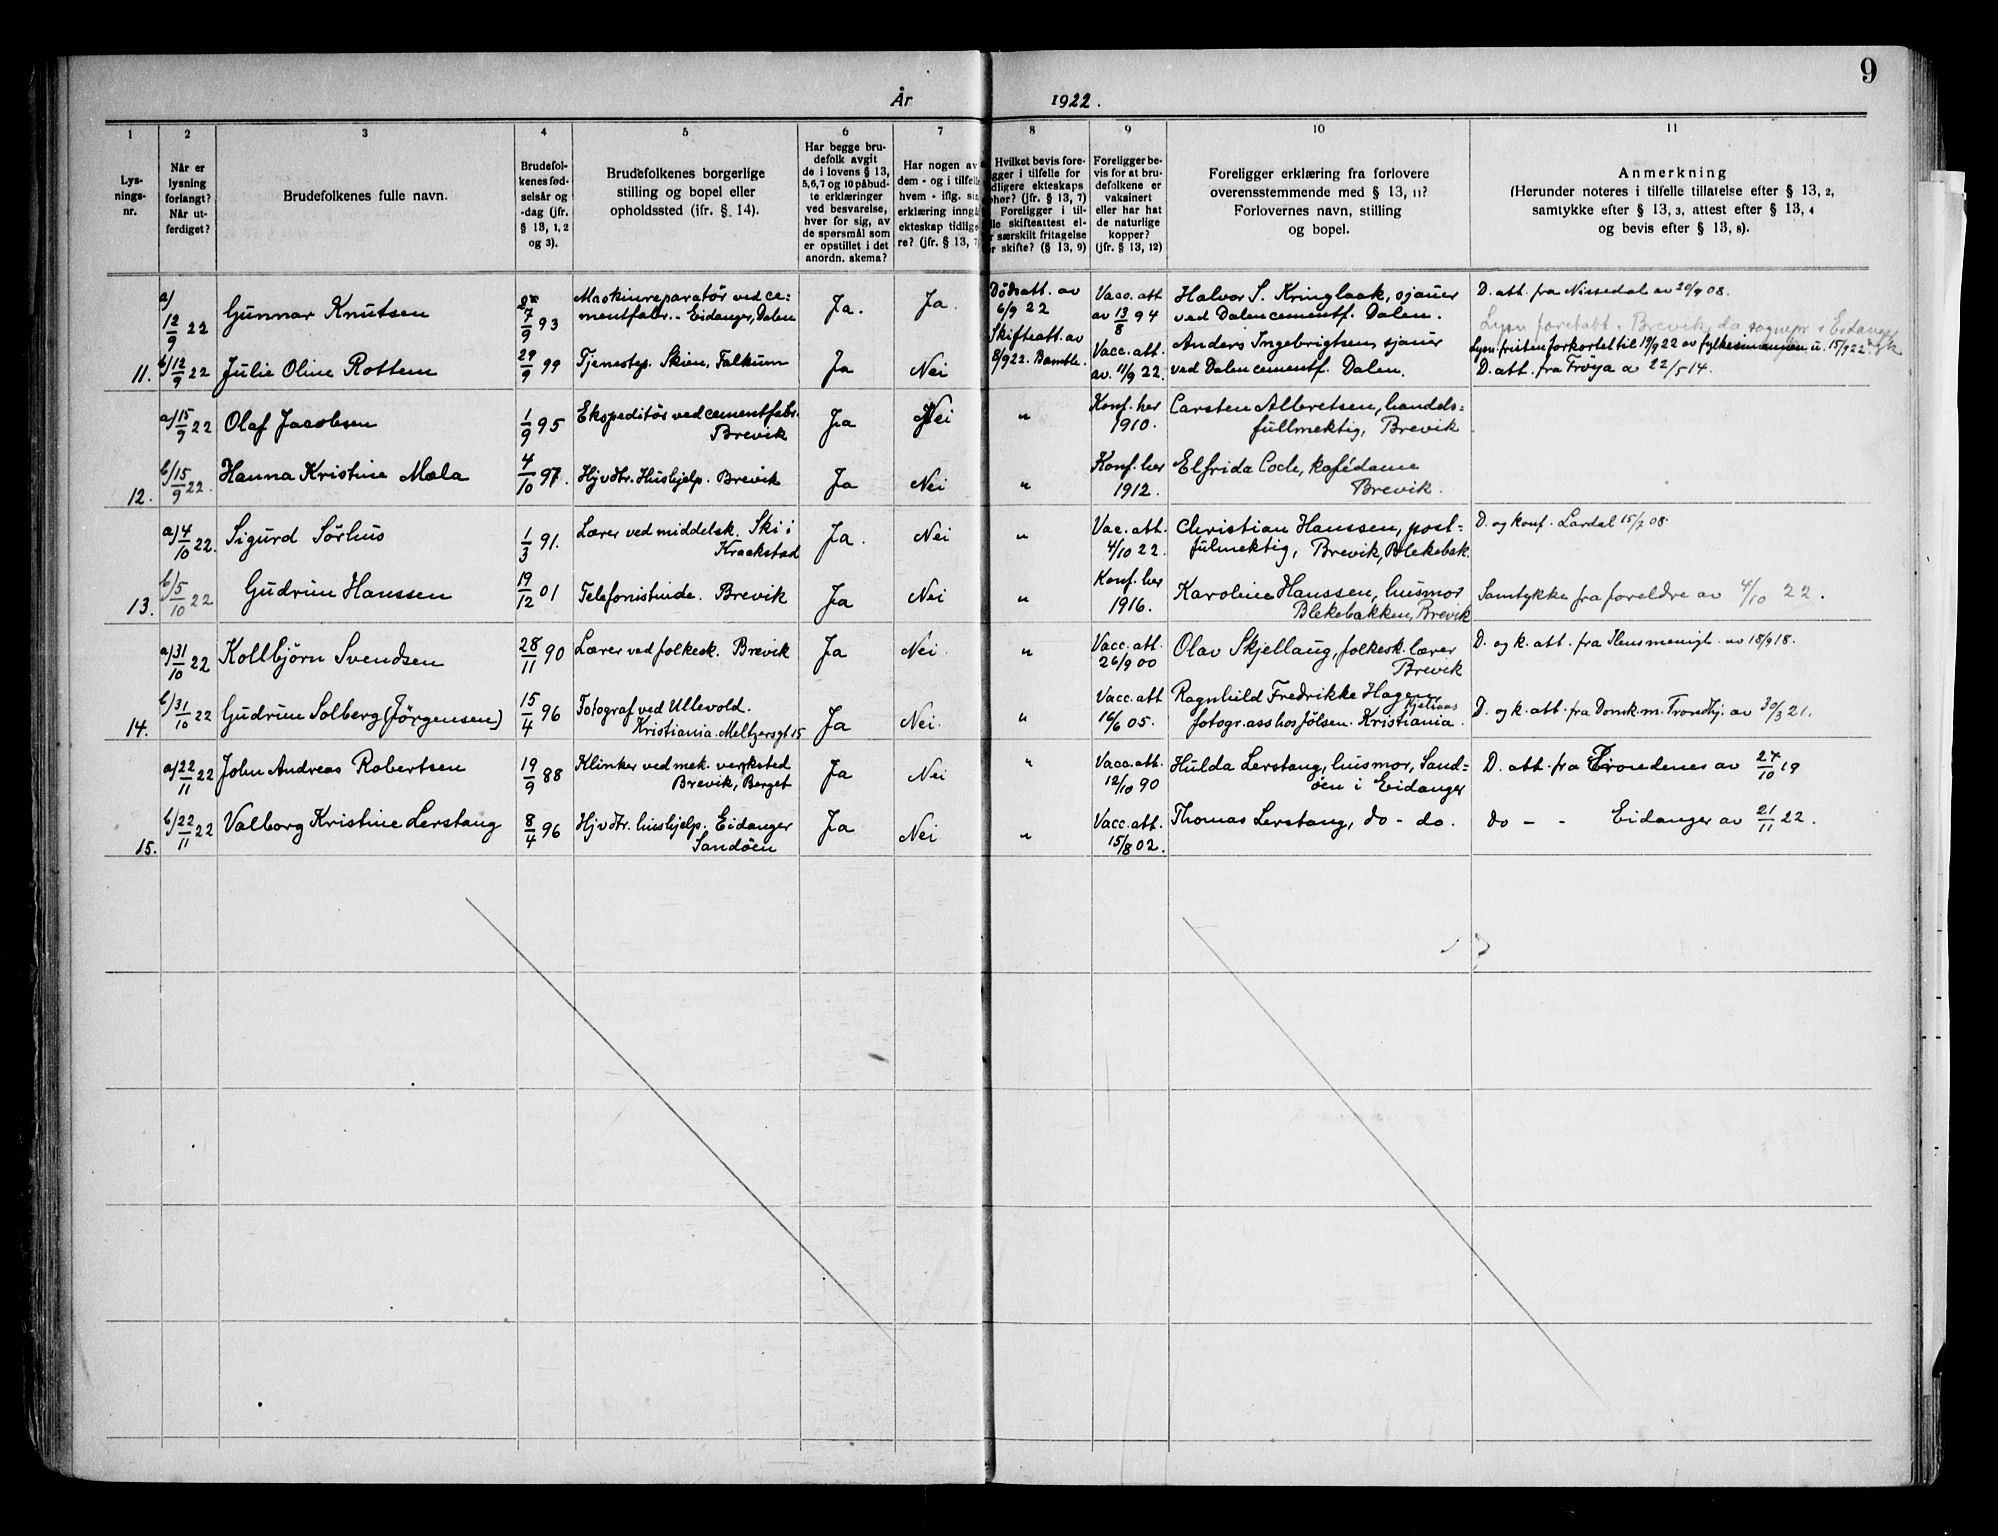 9
År 1922.
1 2 3 4 5 6 7 8 9 10 11
Lys-
nings-
nr.
Når er
lysning
forlangt?
Når ut-
ferdiget?
Brudefolkenes fulle navn.
Brudefol-
kenes fød-
selsår og
-dag (jfr.
§ 13, 1, 2
og 3).
Brudefolkenes borgerlige
stilling og bopel eller
opholdssted (ifr. § 14).
Har begge bru-
defolk avgit
de i lovens § 13,
5,6,7 og 10 påbud-
te erklæringer
ved besvarelse,
hver for sig, av
de spørsmål som
er opstillet i det
anordn. skema?
Har nogen av
dem - og i tilfelle
hvem - iflg. sin
erklæring inngå
ekteskap tidlige
re? (jfr. § 13, 7
Hvilket bevis fore-
gger i tilfelle for
dligere ekteskaps
phør? (jfr. § 13, 7)
Foreligger i til-
lle skifteattest el-
r særskilt fritagelse
r skifte? (§ 13, 9)
Foreligger be-
vis for at bru-
defolkene er
vaksinert
eller har hat
de naturlige
kopper?
(jfr. § 13, 12)
Foreligger erklæring fra forlovere
overensstemmende med § 13, 11?
Forlovernes navn, stilling
og bopel.
Anmerkning
(Herunder noteres i tilfelle tillatelse efter § 13, 2,
samtykke efter § 13, 3, attest efter § 13, 4
og bevis efter § 13, 8).
a) 12/9 22 Gunnar Knutsen 27/9 93 Maskinreparatör ved ce=
mentfabr.- Eidanger, Dalen Ja. Ja. Dødsatt. av
6/9 22
Skifteatt. av
8/9 22. Bamble. Vacc. att.
av 13/8 94 Halvor S. Kringlaak, sjauer
ved Dalen cementf. Dalen. D. att. fra Nissedal av 20/9 08.
Lysn foretatt i Brevik, da sognepr. i Eidanger
11. b) 12/9 22 Julie Oline Rottem 29/9 99 Tjenestep. Skien, Falkum Ja Nei Vacc. att.
av. 11/9 22. Anders Ingebrigtsen, sjauer
ved Dalen cementf. Dalen. Lysn. fristen forkortet til 19/9 22 av fylkesmannen u. 15/9 22
D. att. fra Frøya av 22/5 14.
a) 15/9 22 Olaf Jacobsen 1/9 95 Ekspeditör ved cementfabr.
Brevik Ja Nei " Konf. her
1910. Carsten Albretsen, handels=
fullmektig, Brevik
12. b) 15/9 22. Hanna Kristine Mæla 4/10 97. Hjv. dtr. Hushjelp. Brevik Ja Nei " Konf. her
1912. Elfrida Cock, kafédame
Brevik.
a) 4/10 22. Sigurd Sörhus 1/3 91. Lærer ved middelsk. Ski i
Kraakstad Ja. Nei " Vac. att.
4/10 22. Christian Hanssen, post=
fulmektig, Brevik, Blekebak. D. og konf. Lardal 15/2 08.
13. b) 5/10 22 Gudrun Hanssen 19/12 01 Telefonistinde. Brevik Ja Nei " Konf. her
1916. Karoline Hanssen, husmor
Blekebakken, Brevik Samtykke fra foreldre av 4/10 22.
a) 31/10 22 Kollbjörn Svendsen 28/11 90 Lærer ved folkesk. Brevik Ja Nei " Vacc. att.
26/9 00 Olav Skjellaug, folkesk. lærer
Brevik D. og k. att. fra Ilens menigt. av 18/9 18.
14. b) 31/10 22 Gudrun Solberg (Jörgensen) 15/4 96 Fotograf ved Ullevold.
Kristiania. Meltzersgt 15 Ja Nei. " Vacc. att
16/6 05. Ragnhild Fredrikke Hagen
fotogr. ass hos Jölsen. Kristiania. D. og k. att. fra Domk. m. Trondhj. av 30/3 21.
a) 22/11 22 John Andreas Robertsen 19/9 88 Klinker ved mek. verksted
Brevik, Berget Ja Nei " Vacc. att.
12/10 90 Hulda Lerstang, husmor, Sand=
öen i Eidanger D. att. fra Trondenes av 27/10 19
15. b) 22/11 22 Valborg Kristine Lerstang 8/4 96 Hjv. dtr. hushjelp. Eidanger
Sandöen Ja Nei " Vacc. att.
15/8 02. Thomas Lerstang, do - do. do - - Eidanger av 21/11 22.